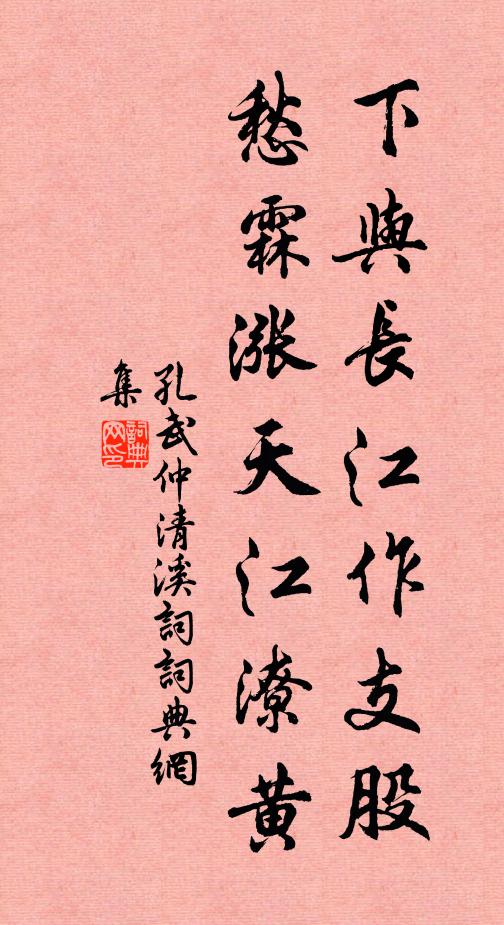 下與長江作支股
愁霖漲天江潦黄
孔武仲清溪詞詞典網
集
詞典
网印